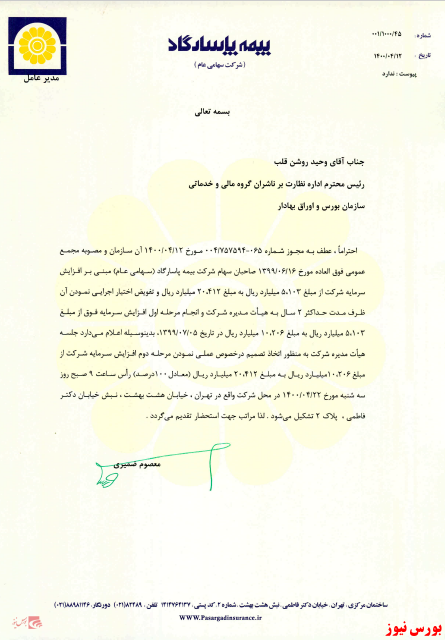 بیمه پاسارگاد
(شرکت سهامی عام)
مدیر عامل
شماره: ۰۰۱/۱۰۰۰/۴۵
تاریخ: ۱۴۰۰/۰۴/۱۲
پیوست: ندارد
بسمه تعالی
جناب آقای وحید روشن قلب
رئیس محترم اداره نظارت بر ناشران گروه مالی و خدماتی
سازمان بورس و اوراق بهادار
احتراماً، عطف به مجوز شماره ۰۰۴/۷۵۷۵۹۴-۰۶۵ مورخ ۱۴۰۰/۰۴/۱۲ آن سازمان و مصوبه مجمع
عمومی فوق العاده مورخ ۱۳۹۹/۰۶/۱۶ صاحبان سهام شرکت بیمه پاسارگاد (سهامی عام) مبنی بر افزایش
سرمایه شرکت از مبلغ ۵،۱۰۳ میلیارد ریال به مبلغ ۲۰،۴۱۲ میلیارد ریال و تفویض اختیار اجرایی نمودن آن
ظرف مدت حداکثر ۲ سال به هیأت مدیره شرکت و انجام مرحله اول افزایش سرمایه فوق از مبلغ
۵،۱۰۳ میلیارد ریال به مبلغ ۱۰،۲۰۶ میلیارد ریال در تاریخ ۱۳۹۹/۰۷/۰۵، بدینوسیله اعلام می‌دارد جلسه
هیأت مدیره شرکت به منظور اتخاذ تصمیم درخصوص عملی نمودن مرحله دوم افزایش سرمایه شرکت از
مبلغ ۱۰،۲۰۶میلیارد ریال به مبلغ ۲۰،۴۱۲ میلیارد ریال (معادل ۱۰۰درصد) رأس ساعت ۹ صبح روز
سه شنبه مورخ ۱۴۰۰/۰۴/۲۲ در محل شرکت واقع در تهران، خیابان هشت بهشت، نبش خیابان دکتر
فاطمی، پلاک ۲ تشکیل می‌شود. لذا مراتب جهت استحضار تقدیم می‌گردد.
معصوم ضمیری
ساختمان مرکزی، تهران، خیابان دکتر فاطمی، نبش هشت بهشت، شماره ۲، کد پستی، ۱۴۱۴۷۶۴۱۳۷ تلفن، ۸۲۴۸۹(۰۲۱) دورنگار، ۸۸۹۸۱۱۴۶(۰۲۱)
www.Pasargadinsurance.ir
بورس نیوز